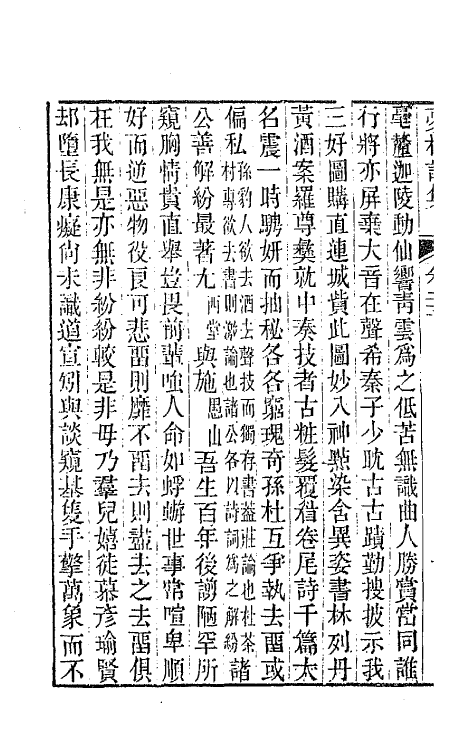 毫釐迦陵動仙響靑雲爲之低苦無識曲人勝賞當同誰
行將亦屏棄大音在聲希秦子少耽古古蹟勤搜披示我
三好圖購直連城貲此圖妙入神點染含異姿書林列丹
黃酒案羅尊彝就中奏技者古粧髮覆𥈭卷尾詩千篇太
名震一時聘妍而抽秘各各窮瑰奇孫杜互爭執去畱或
偏私孫豹人欲去酒去聲技而獨存書葢莊論也杜茶村專欲去書則激論也諸公各以詩詞爲之解紛諸
公善解紛最著尤西堂與施愚山吾生百年後謭陋罕所
窺胸情貴直舉豈畏前輩嗤人命如蜉蝣世事常喧卑順
好而逆惡物役良可悲畱則靡不畱去則盡去之去畱俱
在我無是亦無非紛紛較是非毋乃羣兒嬉徒慕彥瑜賢
却墮長康癡尙未識道宣矧與談窺基隻手擎萬象而不